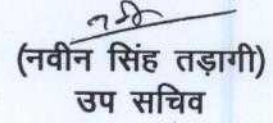 (नवीन सिंह तड़ागी)
उप सचिव